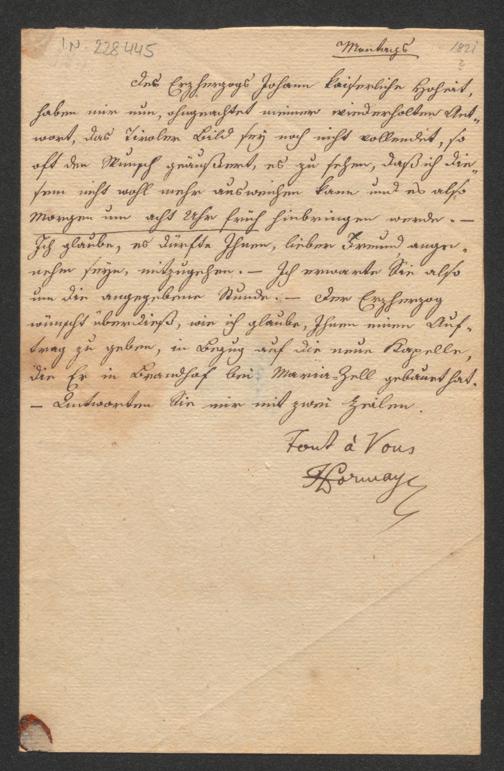 I.N. 228.445
Montags
1821
?
Des Erzherzogs Johann kaiserliche Hoheit,
haben mir nun, ohngeachtet meiner wiederholten Ant-
wort, das Tiroler Bild sey noch nicht vollendet, so
oft den Wunsch geäußert, es zu sehen, daß ich die-
sem nicht wohl mehr ausweichen kann und es also
Morgen um acht Uhr früh hinbringen werde. —
Ich glaube, es dürfte Ihnen, lieber Freund, ange-
nehm seyn, mitzugehen. — Ich erwarte Sie also
um die angegebene Stunde. — Der Erzherzog
wünscht überdieß, wie ich glaube, Ihnen einen Auf-
trag zu geben, in Bezug auf die neue Kapelle,
die Er in Brandhof bei Maria-Zell gebauet hat.
— Antworten Sie mir mit zwei Zeilen.
Tout à Vous
Hormayr